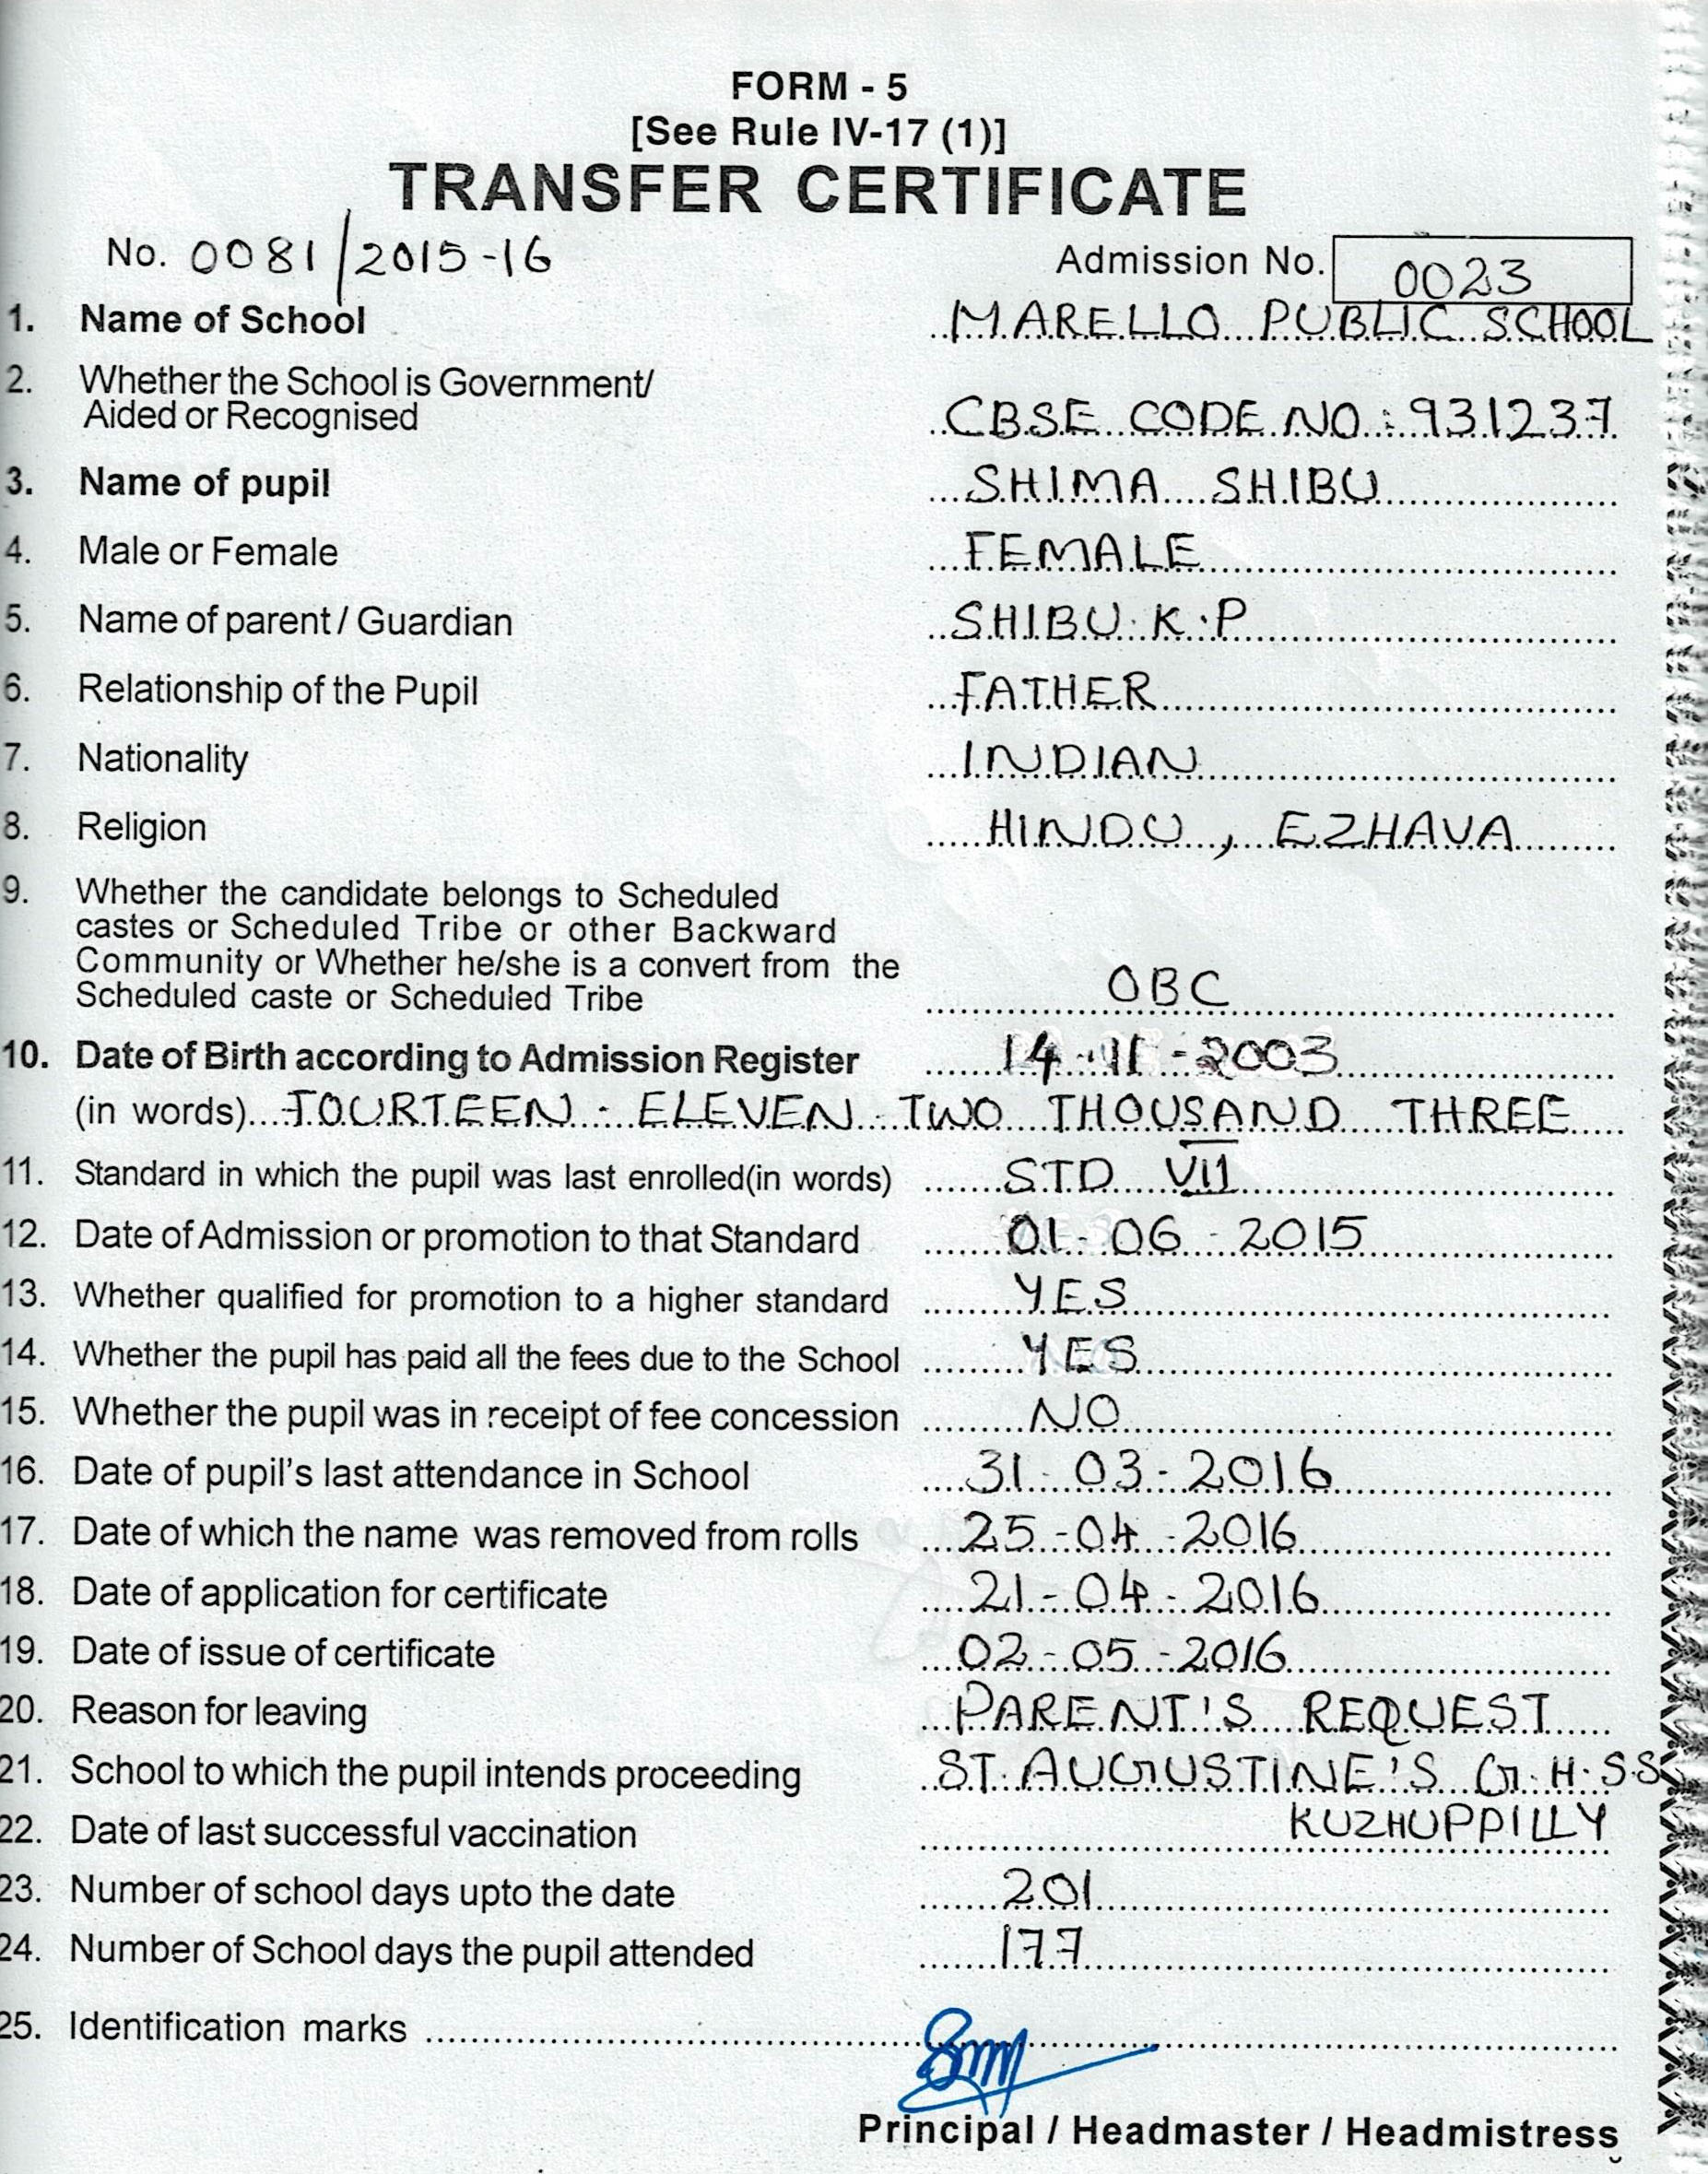 FORM - 5
[See Rule IV-17 (1)]
TRANSFER CERTIFICATE
No. 0081/2015-16 Admission No. 0023
1. Name of School MARELLO PUBLIC SCHOOL
2. Whether the School is Government/
Aided or Recognised CBSE CODE NO : 931237
3. Name of pupil SHIMA SHIBU
4. Male or Female FEMALE
5. Name of parent / Guardian SHIBU. K. P
6. Relationship of the Pupil FATHER
7. Nationality INDIAN
8. Religion HINDU, EZHAVA
9. Whether the candidate belongs to Scheduled
castes or Scheduled Tribe or other Backward
Community or Whether he/she is a convert from the
Scheduled caste or Scheduled Tribe OBC
10. Date of Birth according to Admission Register 14-11-2003
(in words) FOURTEEN - ELEVEN - TWO THOUSAND THREE
11. Standard in which the pupil was last enrolled(in words) STD VII
12. Date of Admission or promotion to that Standard 01-06-2015
13. Whether qualified for promotion to a higher standard YES
14. Whether the pupil has paid all the fees due to the School YES
15. Whether the pupil was in receipt of fee concession NO
16. Date of pupil's last attendance in School 31-03-2016
17. Date of which the name was removed from rolls 25-04-2016
18. Date of application for certificate 21-04-2016
19. Date of issue of certificate 02-05-2016
20. Reason for leaving PARENT'S REQUEST
21. School to which the pupil intends proceeding ST. AUGUSTINE'S G.H.S.S
KUZHUPPILLY
22. Date of last successful vaccination
23. Number of school days upto the date 201
24. Number of School days the pupil attended 177
25. Identification marks
Principal / Headmaster / Headmistress